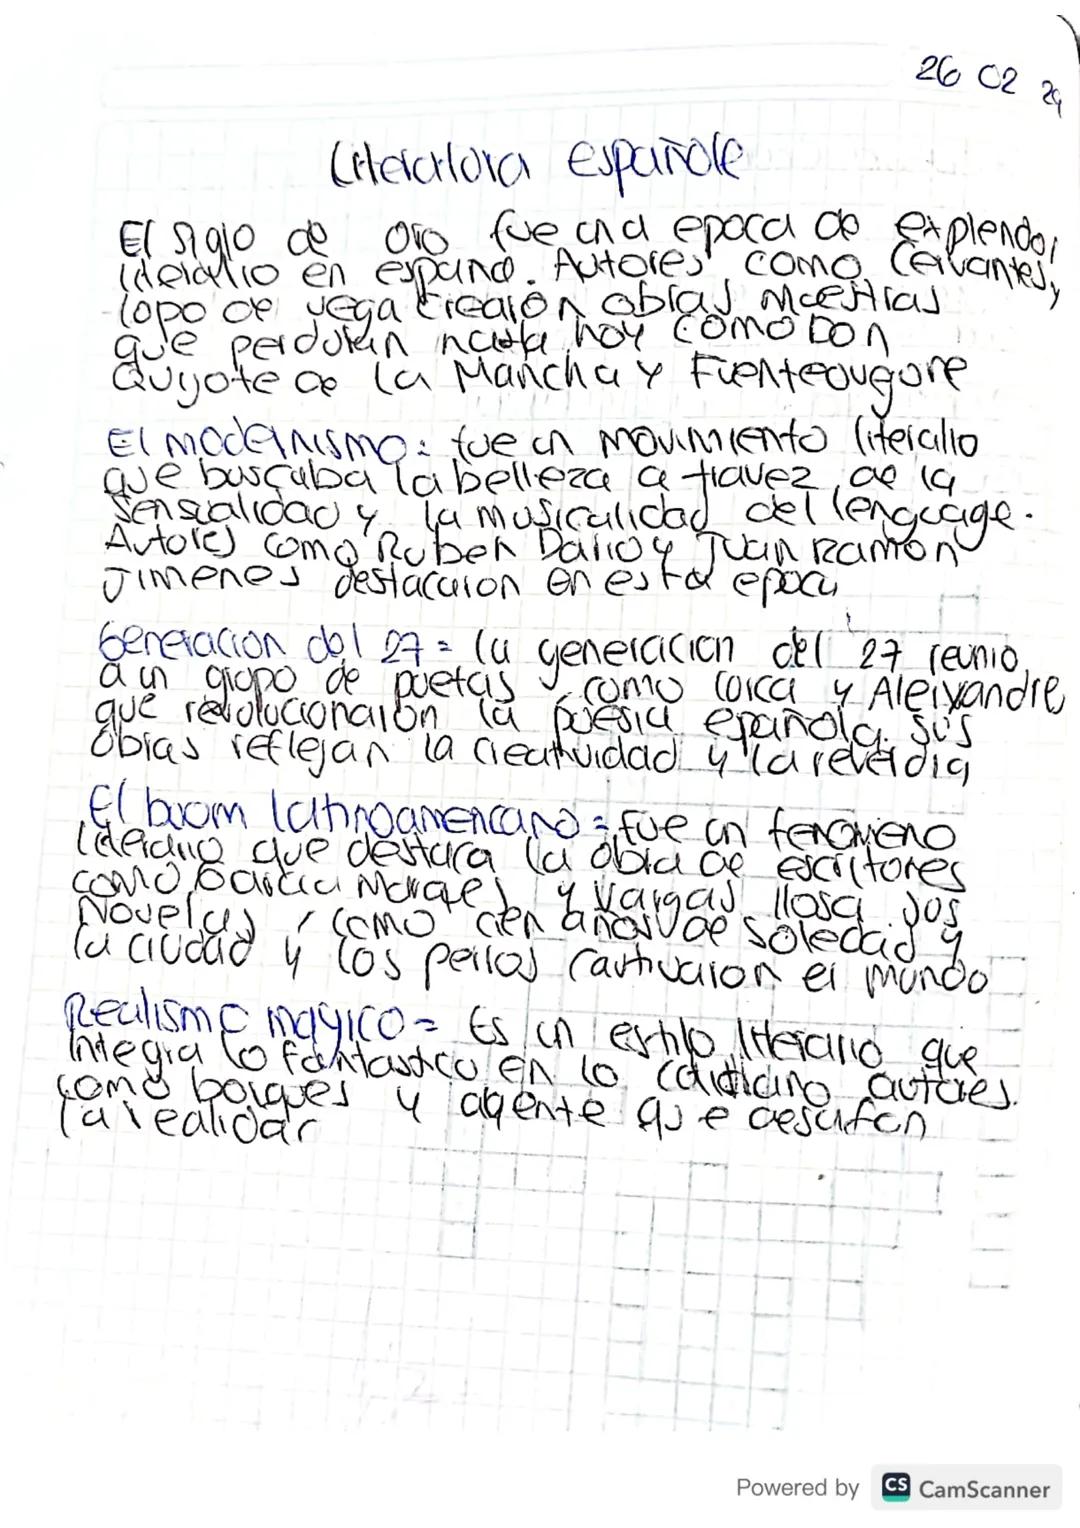 26 02 24
Literatura española
El siglo de oro fue una epoca de explendor
literario en españa. Autores como Cervantes, y
lopo de vega crearón obras maestras
que perduran hasta hoy como Don
Quijote de la Mancha y Fuenteovegore
El modernismo: fue un movimiento literario
que buscaba la belleza a travez de la
sensualidad y la musicalidad del lenguage.
Autores como Ruben Dario y Juan Ramón
Jimenes destacaron en esta epoca
Generacion del 27= la generacion del 27 reunio
a un grupo de poetas como lorca y Aleixandre
que revolucionarón la poesia epañola. sus
obias reflejan la creatividad y la reveldia
El boom latinoamericano= fue un fenomeno
literario que destara la obra de escritores
como Garcia Marqes y Vargas llosa sus
Novelas, como cien años de soledad y
la ciudad y los perros cautivaron el mundo
Realismo magico= Es un estilo literario que
integra lo fantastico en lo cotidiano autores.
como borques y agente que desafan
la realidar
Powered by CS CamScanner